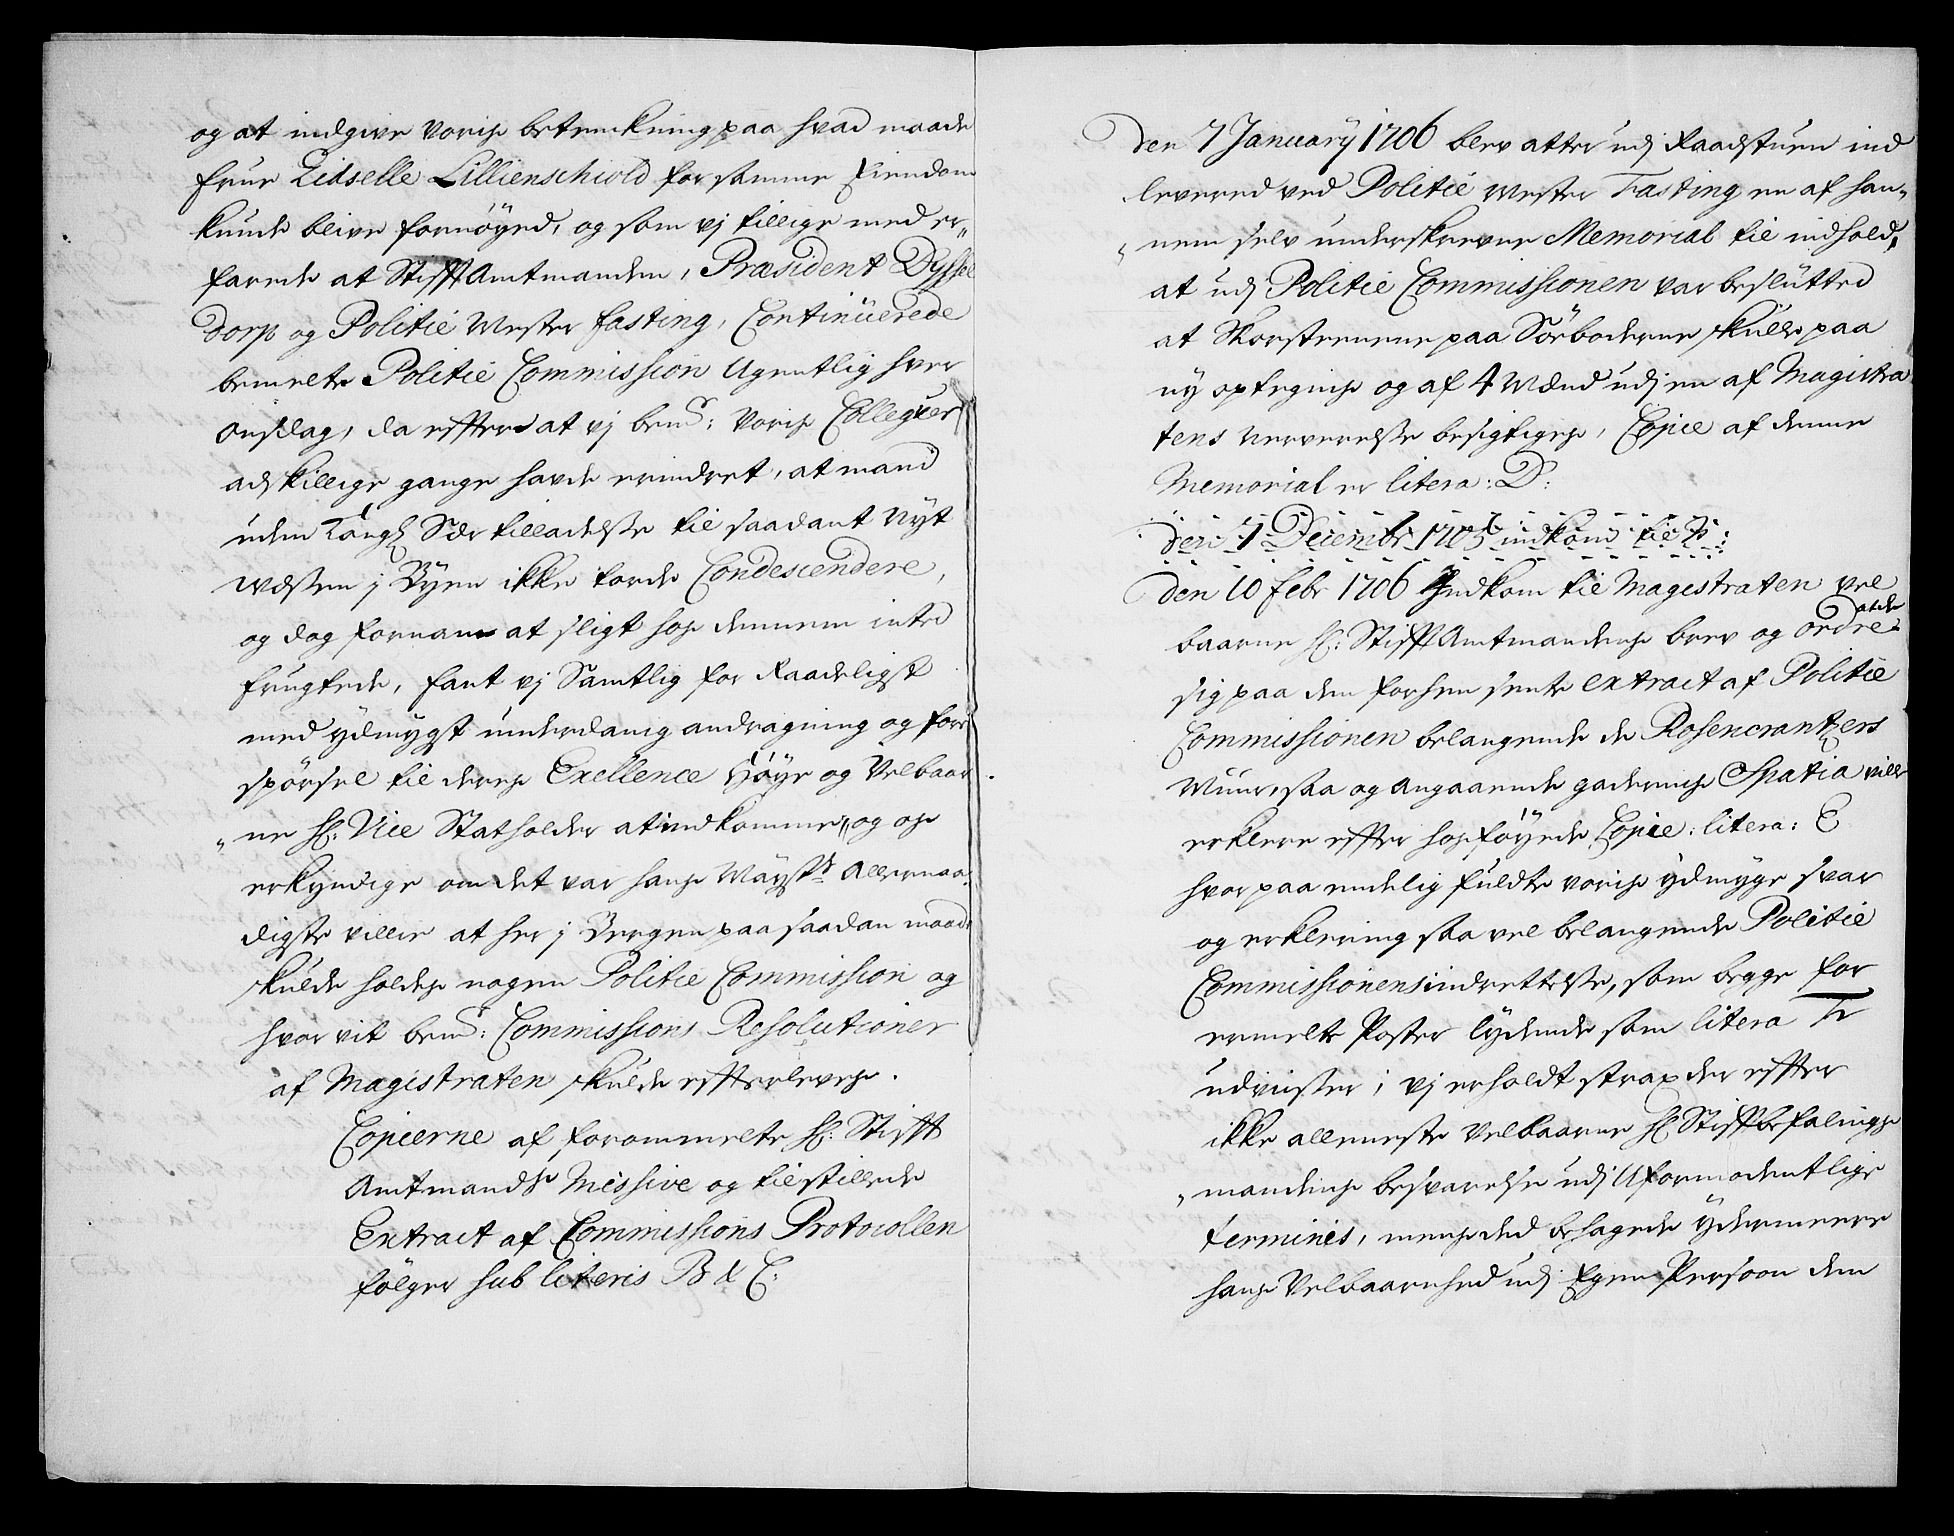 og at indgive voris betenckning paa hvad maade
frue Zidselle Lillienschiold for samme Eiendom
kunde blive fornöyed, og som vj tillige med er„
farede at StifftAmtmanden, Præsident Dyssel
dorp og Politie Mester fasting, Continüerede
bemelte Politie Commission Ugentlig hver
onsdag, da effterat vj bem: voris Collegver
adskillige gange havde erindret, at mand
uden Kongl Sær tilladelsse til saadant Nyt
Wæssen j Byen ikke torde Condescendere,
og dog fornam at sligt hos dennem inted
frugtede, fant vj Samtlig for Raadeligst
med ydmygst underdanig andragning og fore
spörsel til deris Exellence Höye og Velbaar
„ne Hr: Vice Statholder at indkomme, og os
erkyndige om det var hans Mayst allernaa
digste villie at her j Bergen paa saadan maade
skulde holdes nogen Politie Commission og
hvorvit bem: Commissions Resolutioner
af Magistraten skulde effterleves.
Copierne af forommelte Hr: Stifft
Amtmands Missive og tilstillede
Extract af Commissions Protocollen
fölger sub literis B & C:
Den 7 January 1706 blev atter udj Raadstuen ind
levered ved Politie Mester Fasting en af han„
„nem selv underskrevne Memorial til indhold,
at udj Politie Commissionen var beslütted
at Skorsteenene paa Söeboderne skulle paa
ny optegnes og af 4 Mænd udj en af Magistra
tens nerverelsse besigtiges, Copie af denne
Memorial er litera: D:
Den 4 Decembr 1705 indkom til
Den 10 febr 1706 Indkom til Magistraten vel
baarne Hr: StifftAmtmandens brev og ordre at de
sig paa den forhen sente extract af Politie
Commissionen belangende de Rosencrantzers
Muur, saa og angaaende gadernis Spatia ville
erklere effter hosföyede Copie: litera: E
hvor paa endelig fuldte voris ydmyge svar
og erklering saa vel belangende Politie
Commissionens indrettelsse, som begge for
ermelte Poster lydende som litera F
udviisser; vj erholdt strax der effter
ikke alleneste Velbaarne Hr Stifftbefalings
„mandens besvarelse udj Uformodentlige
terminis, mens ded behagede ydermeere
hans Velbaarnhed udj Egen Persoon den